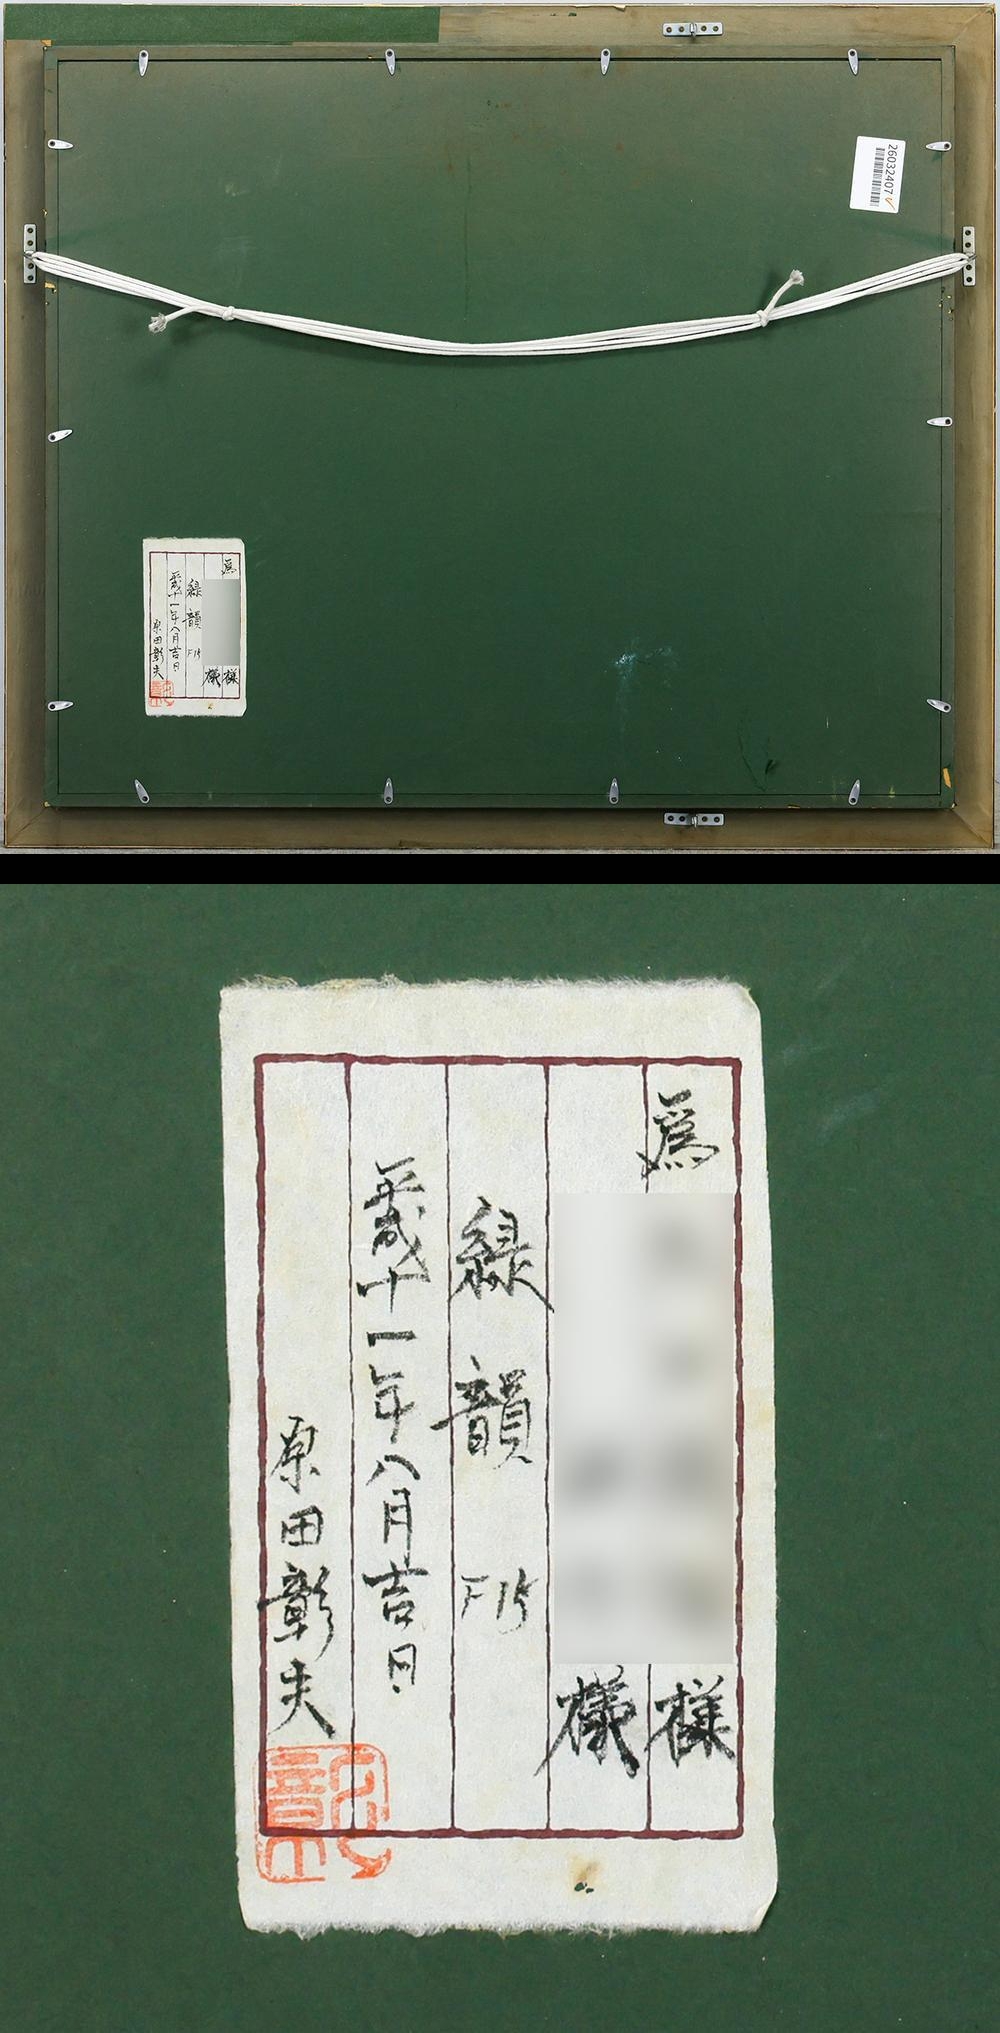 26032407
為
様
様
緑韻 F15
平成十一年八月吉日
原田彰夫
為
様
様
緑韻 F15
平成十一年八月吉日
原田彰夫